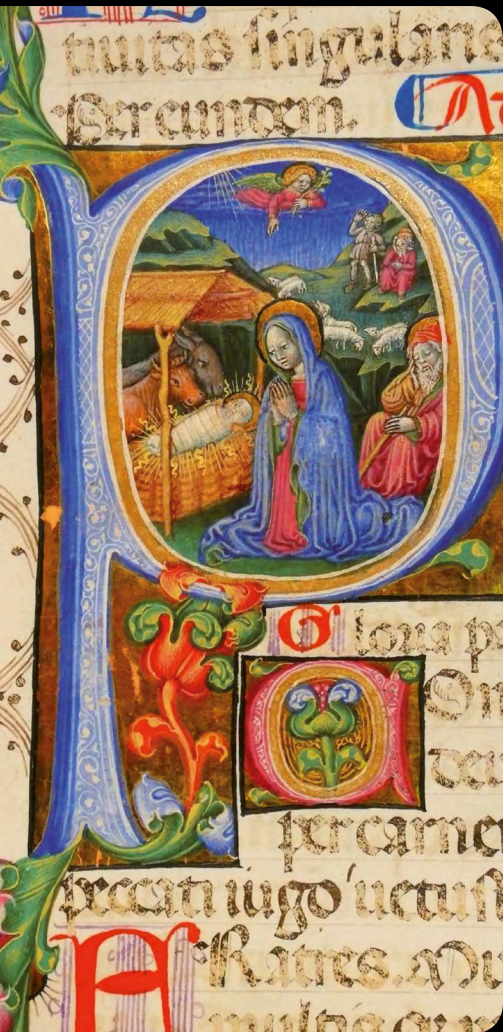 tiuitas singularis
Per eundem.
P
Gloria p
COn
per carne
peccati iugo uetust
FRatres. Mu